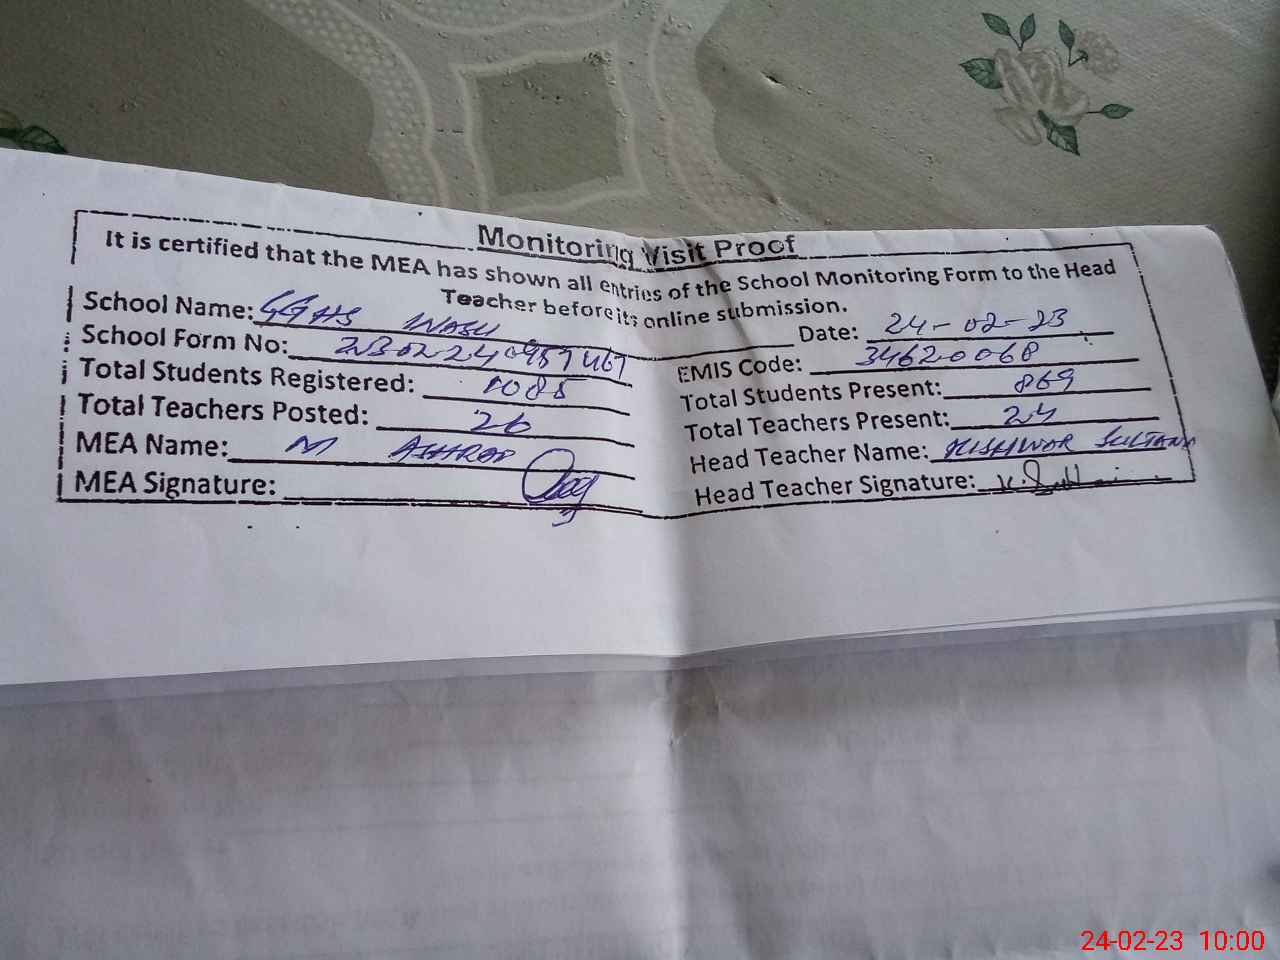 Monitoring Visit Proof
It is certified that the MEA has shown all entries of the School Monitoring Form to the Head
Teacher before its online submission.
School Name: GGHS Date: 24-02-23
School Form No: EMIS Code: 34620068
Total Students Registered: 1085 Total Students Present: 869
Total Teachers Posted: 26 Total Teachers Present: 24
MEA Name: M ASHRAF Head Teacher Name: KISHWOR SULTANA
MEA Signature: Head Teacher Signature:
24-02-23 10:00